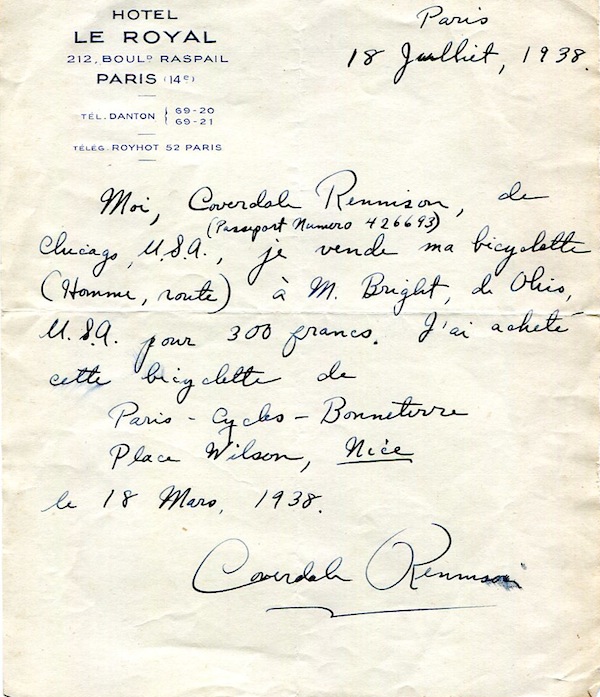 HOTEL
LE ROYAL
212, BOULD RASPAIL
PARIS (14e)
TÉL. DANTON { 69-20
69-21
TÉLÉG. ROYHOT 52 PARIS
Paris
18 Juilliet, 1938.
Moi, Coverdale Rennison, de
(Passeport Numero 426693)
Chicago, U.S.A., je vende ma bicyclette
(Homme, route) à M. Bright, de Ohio,
U.S.A. pour 300 francs. J'ai acheté
cette bicyclette de
Paris - Cycles - Bonneterre
Place Wilson, Nice
le 18 Mars, 1938.
Coverdale Rennison